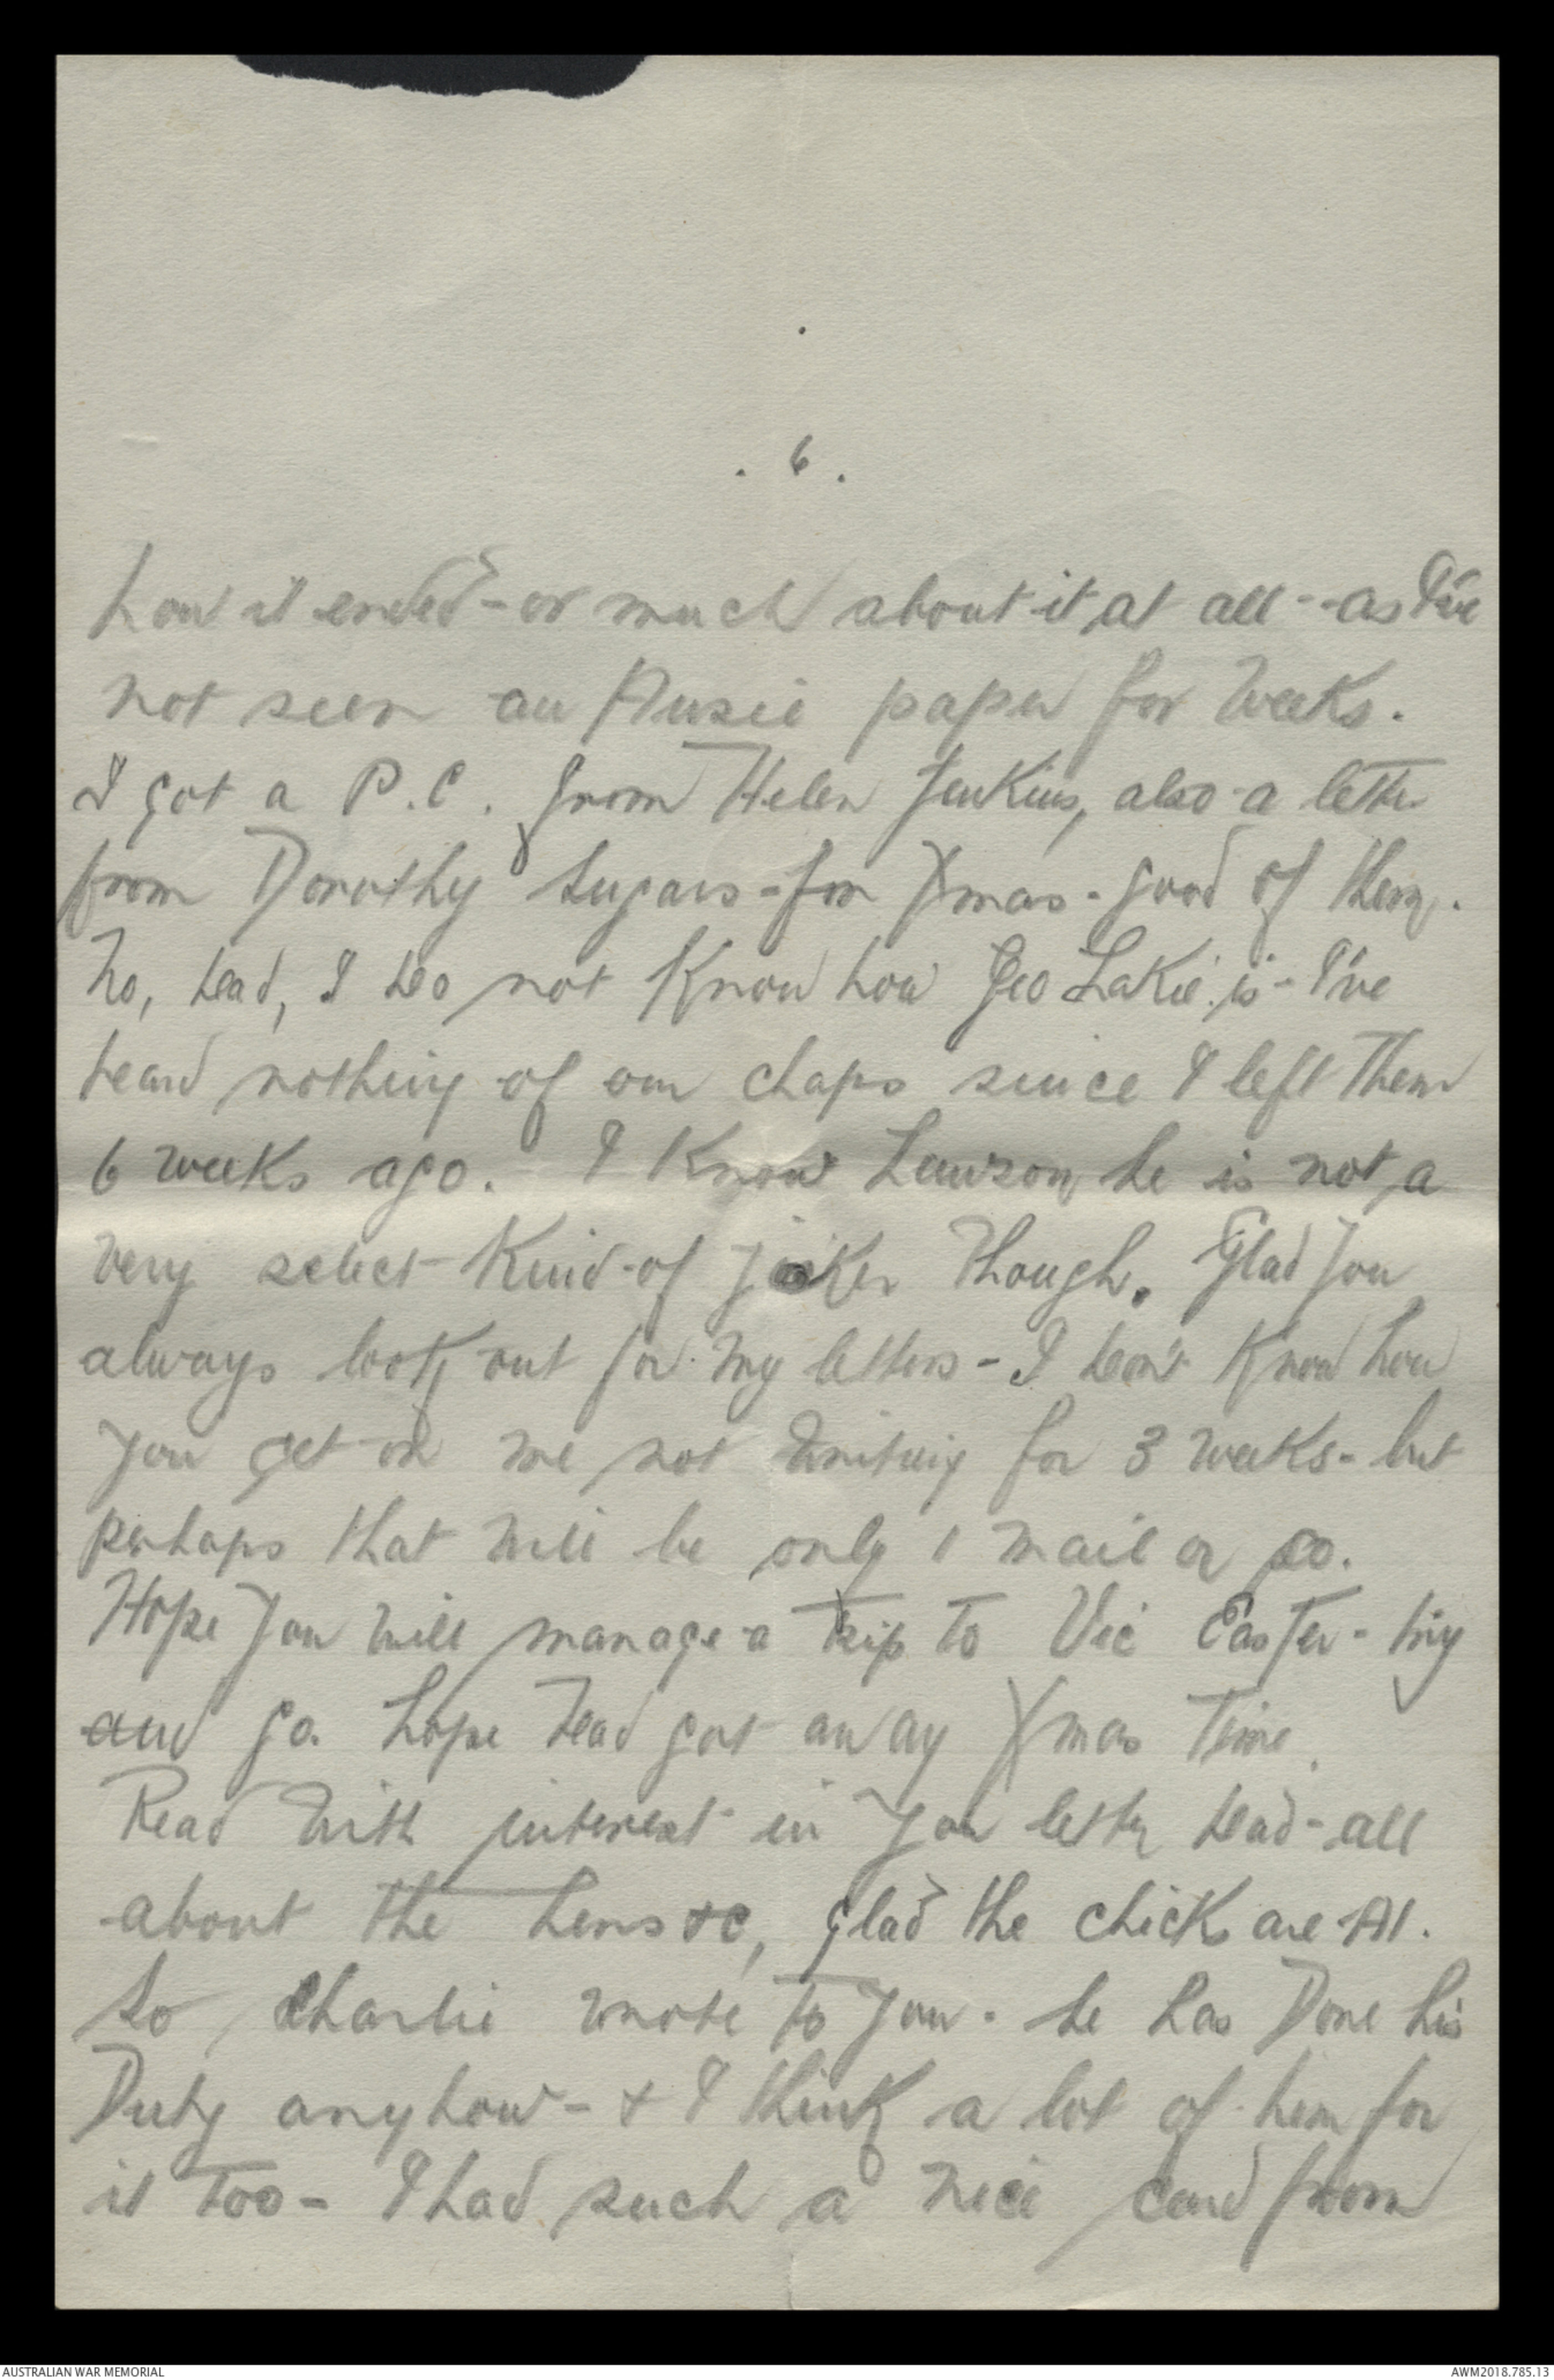 . 6 .
how it ended - or much about it at all - as I've
not seen an Ausie paper for weeks.
I got a P.C. from Helen Jenkins, also a letter
from Dorothy Sugars - for Xmas - good of them.
No, Dad, I do not know how Geo Lakie is - I've
heard nothing of our chaps since I left them
6 weeks ago. - I know Lawson, he is not a
very select kind of joker though. Glad you
always look out for my letters - I don't know how
you get on me not writing for 3 weeks - but
perhaps that will be only 1 mail or so.
Hope you will manage a trip to Vic Easter - try
and go. Hope Dad got away Xmas Time.
Read with interest in your letter Dad - all
about the hens &c, glad the chicks are A1.
So, Charlie wrote to you. He has Done his
Duty anyhow - & I think a lot of him for
it too - I had such a nice card from
AUSTRALIAN WAR MEMORIAL
AWM2018.785.13